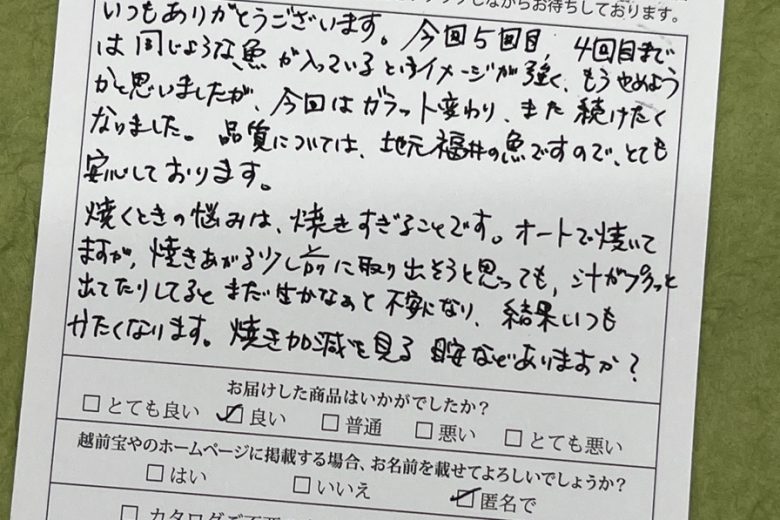 しながらお待ちしております。
いつもありがとうございます。今回5回目、4回目まで
は同じような魚が入っているというイメージが強く、もうやめよう
かと思いましたが、今回はガラット変わり、また続けたく
なりました。品質については、地元福井の魚ですので、とても
安心しております。
焼くときの悩みは、焼きすぎることです。オートで焼いて
ますが、焼きあがる少し前に取り出そうと思っても、汁がプクッと
出てたりしてるとまだ生かなぁと不安になり、結果いつも
かたくなります。焼き加減を見る目安などありますか?
お届けした商品はいかがでしたか?
□とても良い ☑良い □普通 □悪い □とても悪い
越前宝やのホームページに掲載する場合、お名前を載せてよろしいでしょうか?
□はい □いいえ ☑匿名で
□カタログご不要